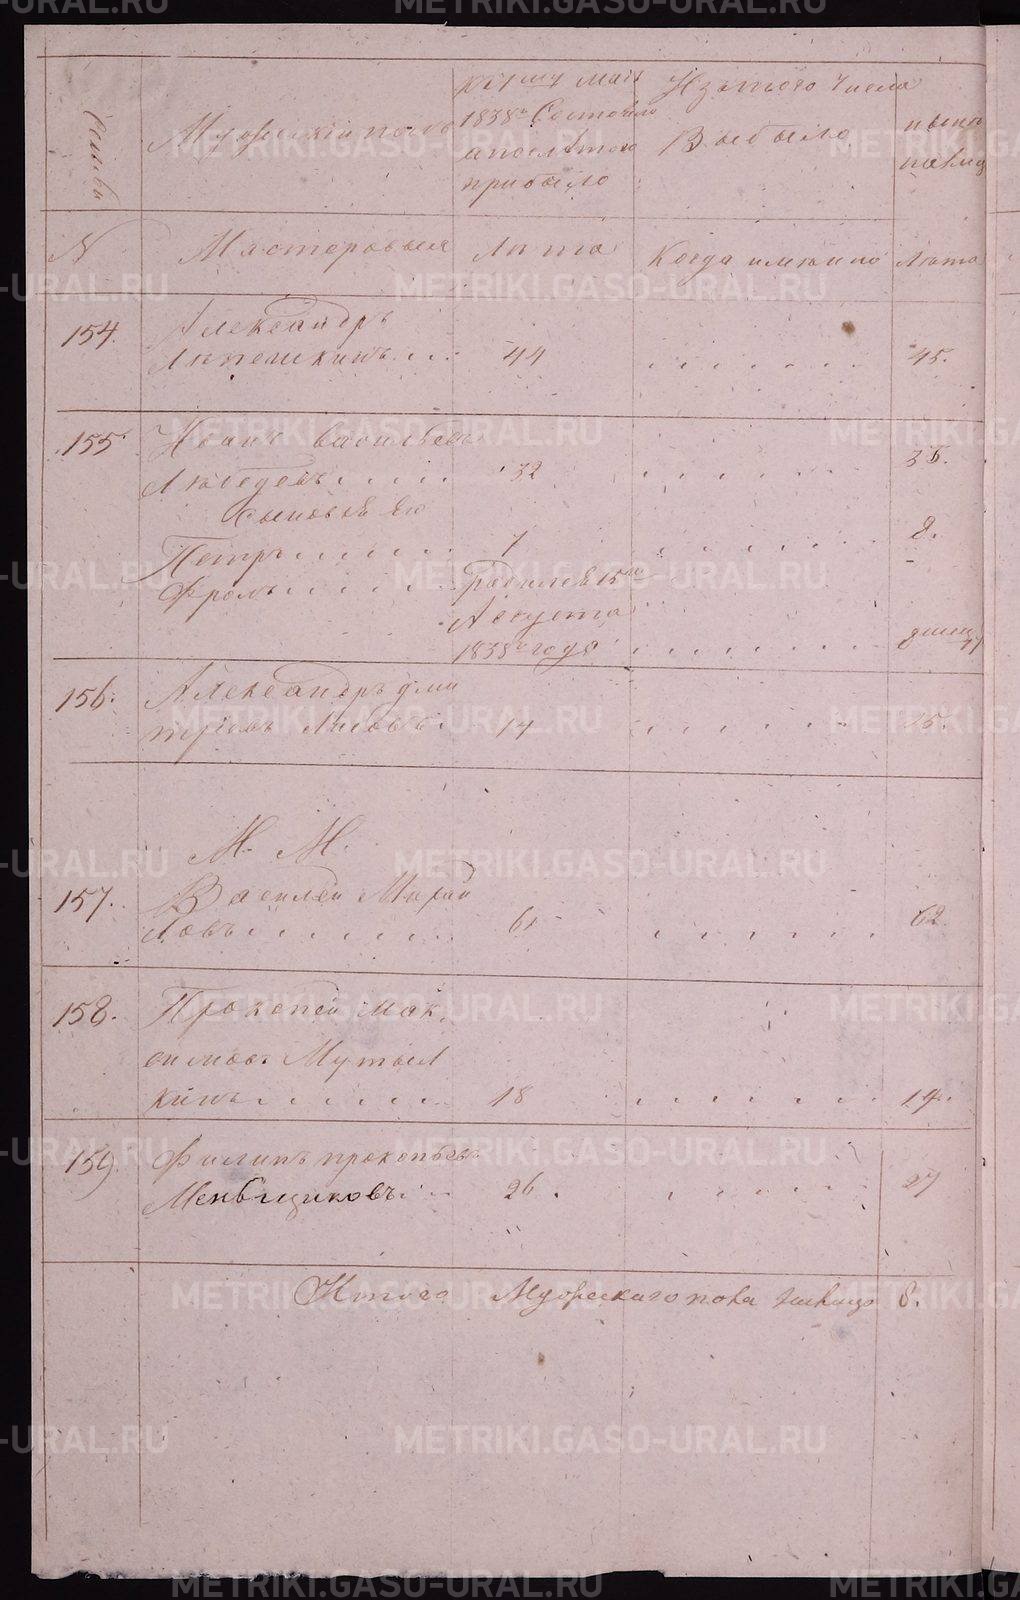 METRIKI.GASO-URAL.RU
Мужескій полъ
Къ 1му Маія
1838го Состояло
а после того
прибыло
Изъ того числа
Выбыло
N
Мастеровыя
Лѣта
Когда имянно
Лѣта
154.
Александръ
Лепешкинъ
44
45.
155
Иванъ Васильевъ
Лебедевъ
32
Сыновья Его
Петръ
7
8.
Фролъ
Родился 15го
Августа
1838го года
156.
Александръ Дми
тріевъ
14
15.
М. М.
157.
Василей Михай
ловъ
61
62
158.
Прокопей Мак
симовъ
кинъ
18
19.
159
Филипъ Прокопьевъ
Меньщиковъ
26
27
Итого Мужескаго пола 8.